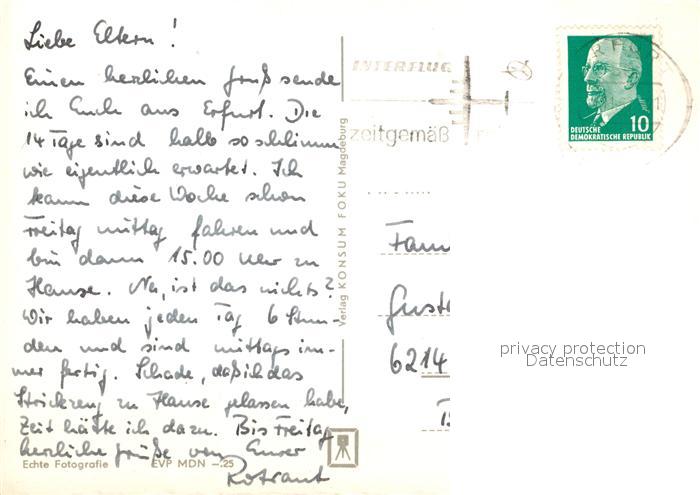 Liebe Eltern!
Einen herzlichen Gruß sende
ich Euch aus Erfurt. Die
14 Tage sind halb so schlimm
wie eigentlich erwartet. Ich
kann diese Woche schon
Freitag mittag fahren und
bin dann 15.00 Uhr zu
Hause. Na, ist das nichts?
Wir haben jeden Tag 6 Stun-
den und sind mittags im-
mer fertig. Schade, daß ich das
Strickzeug zu Hause gelassen habe,
Zeit hätte ich dazu. Bis Freitag
herzliche Grüße von Eurer
Rotraut
Echte Fotografie EVP MDN –.25
Verlag KONSUM FOKU Magdeburg
INTERFLUG
zeitgemäß
DEUTSCHE
DEMOKRATISCHE REPUBLIK
10
Fam
Gust
6214
privacy protection
Datenschutz